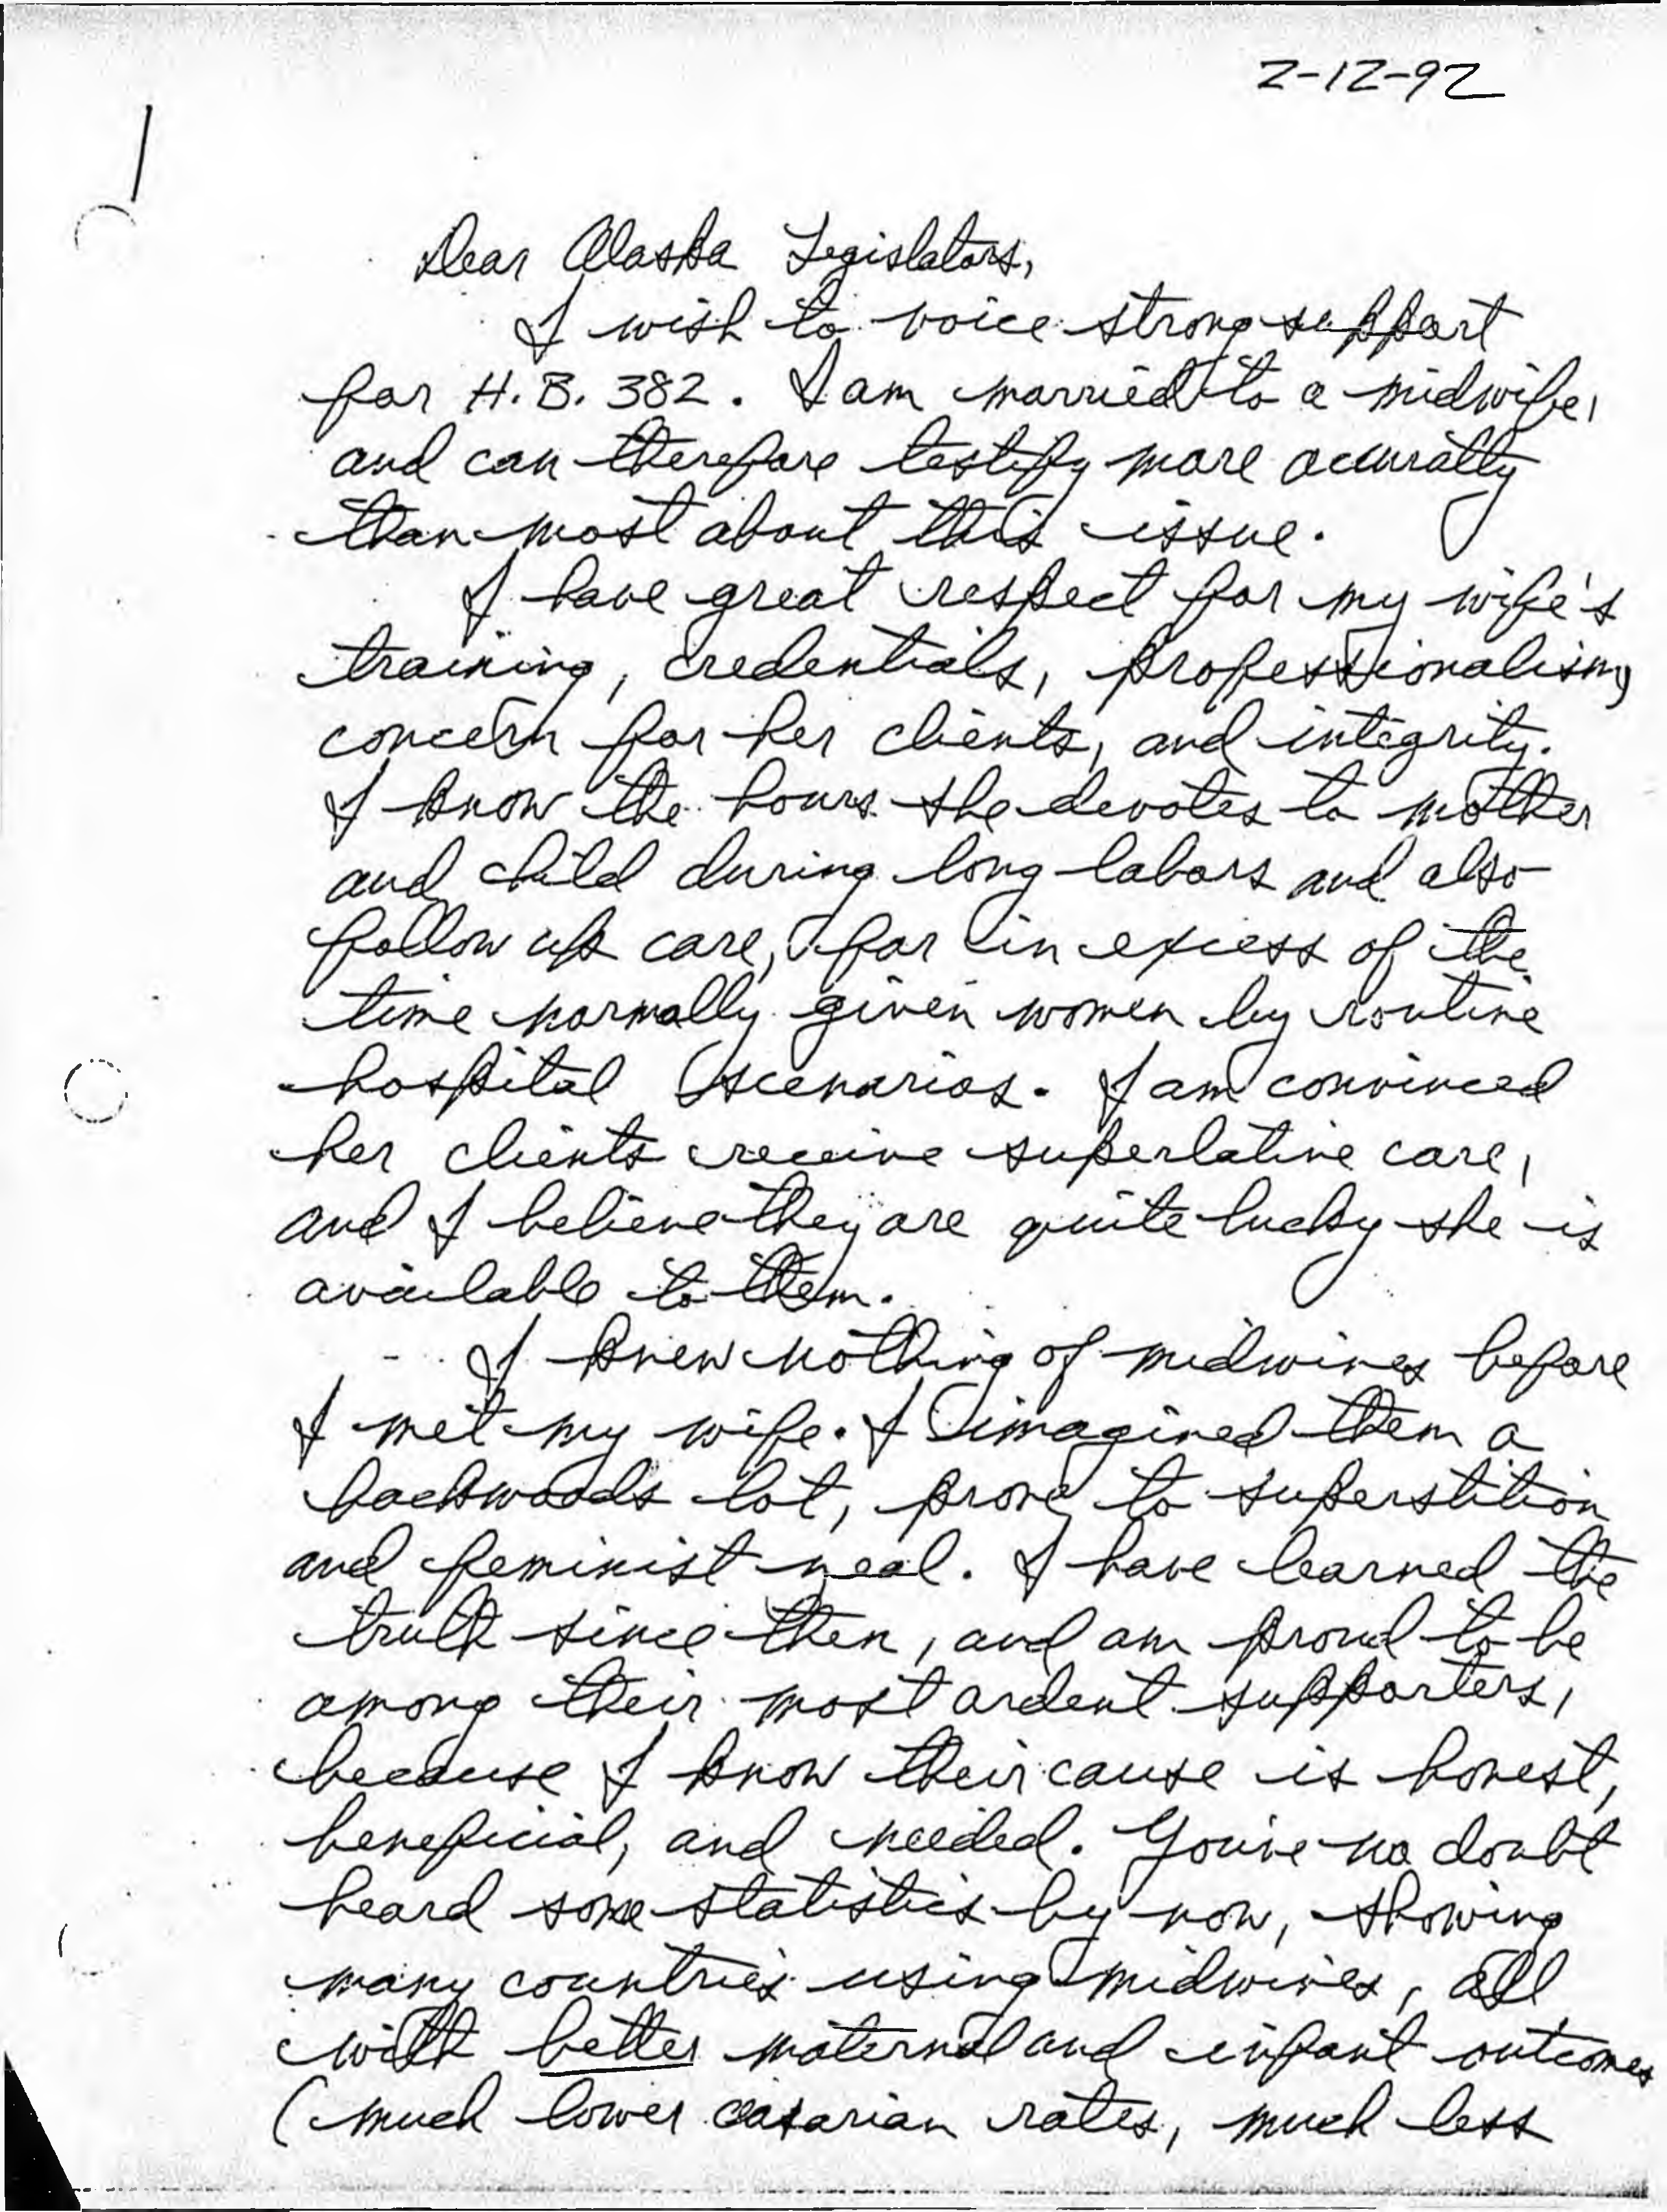 2-12-92
Dear Alaska Legislators,
I wish to voice strong support
for H.B. 382. I am married to a midwife,
and can therefore testify more accuratly
than most about this issue.
I have great respect for my wife's
training, credentials, professionalism,
concern for her clients, and integrity.
I know the hours she devotes to mother
and child during long labors and also
follow up care, far in excess of the
time normally given women by routine
hospital scenarios. I am convinced
her clients receive superlative care,
and I believe they are quite lucky she is
available to them.
I knew nothing of midwives before
I met my wife. I imagined them a
backwoods lot, prone to superstition
and feminist zeal. I have learned the
truth since then, and am proud to be
among their most ardent supporters,
because I know their cause is honest,
beneficial, and needed. You've no doubt
heard some statistics by now, showing
many countries using midwives, all
with better maternal and infant outcomes
(much lower casarian rates, much less